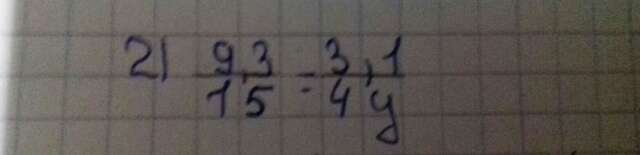 2) 9,3/15 = 3,1/4y